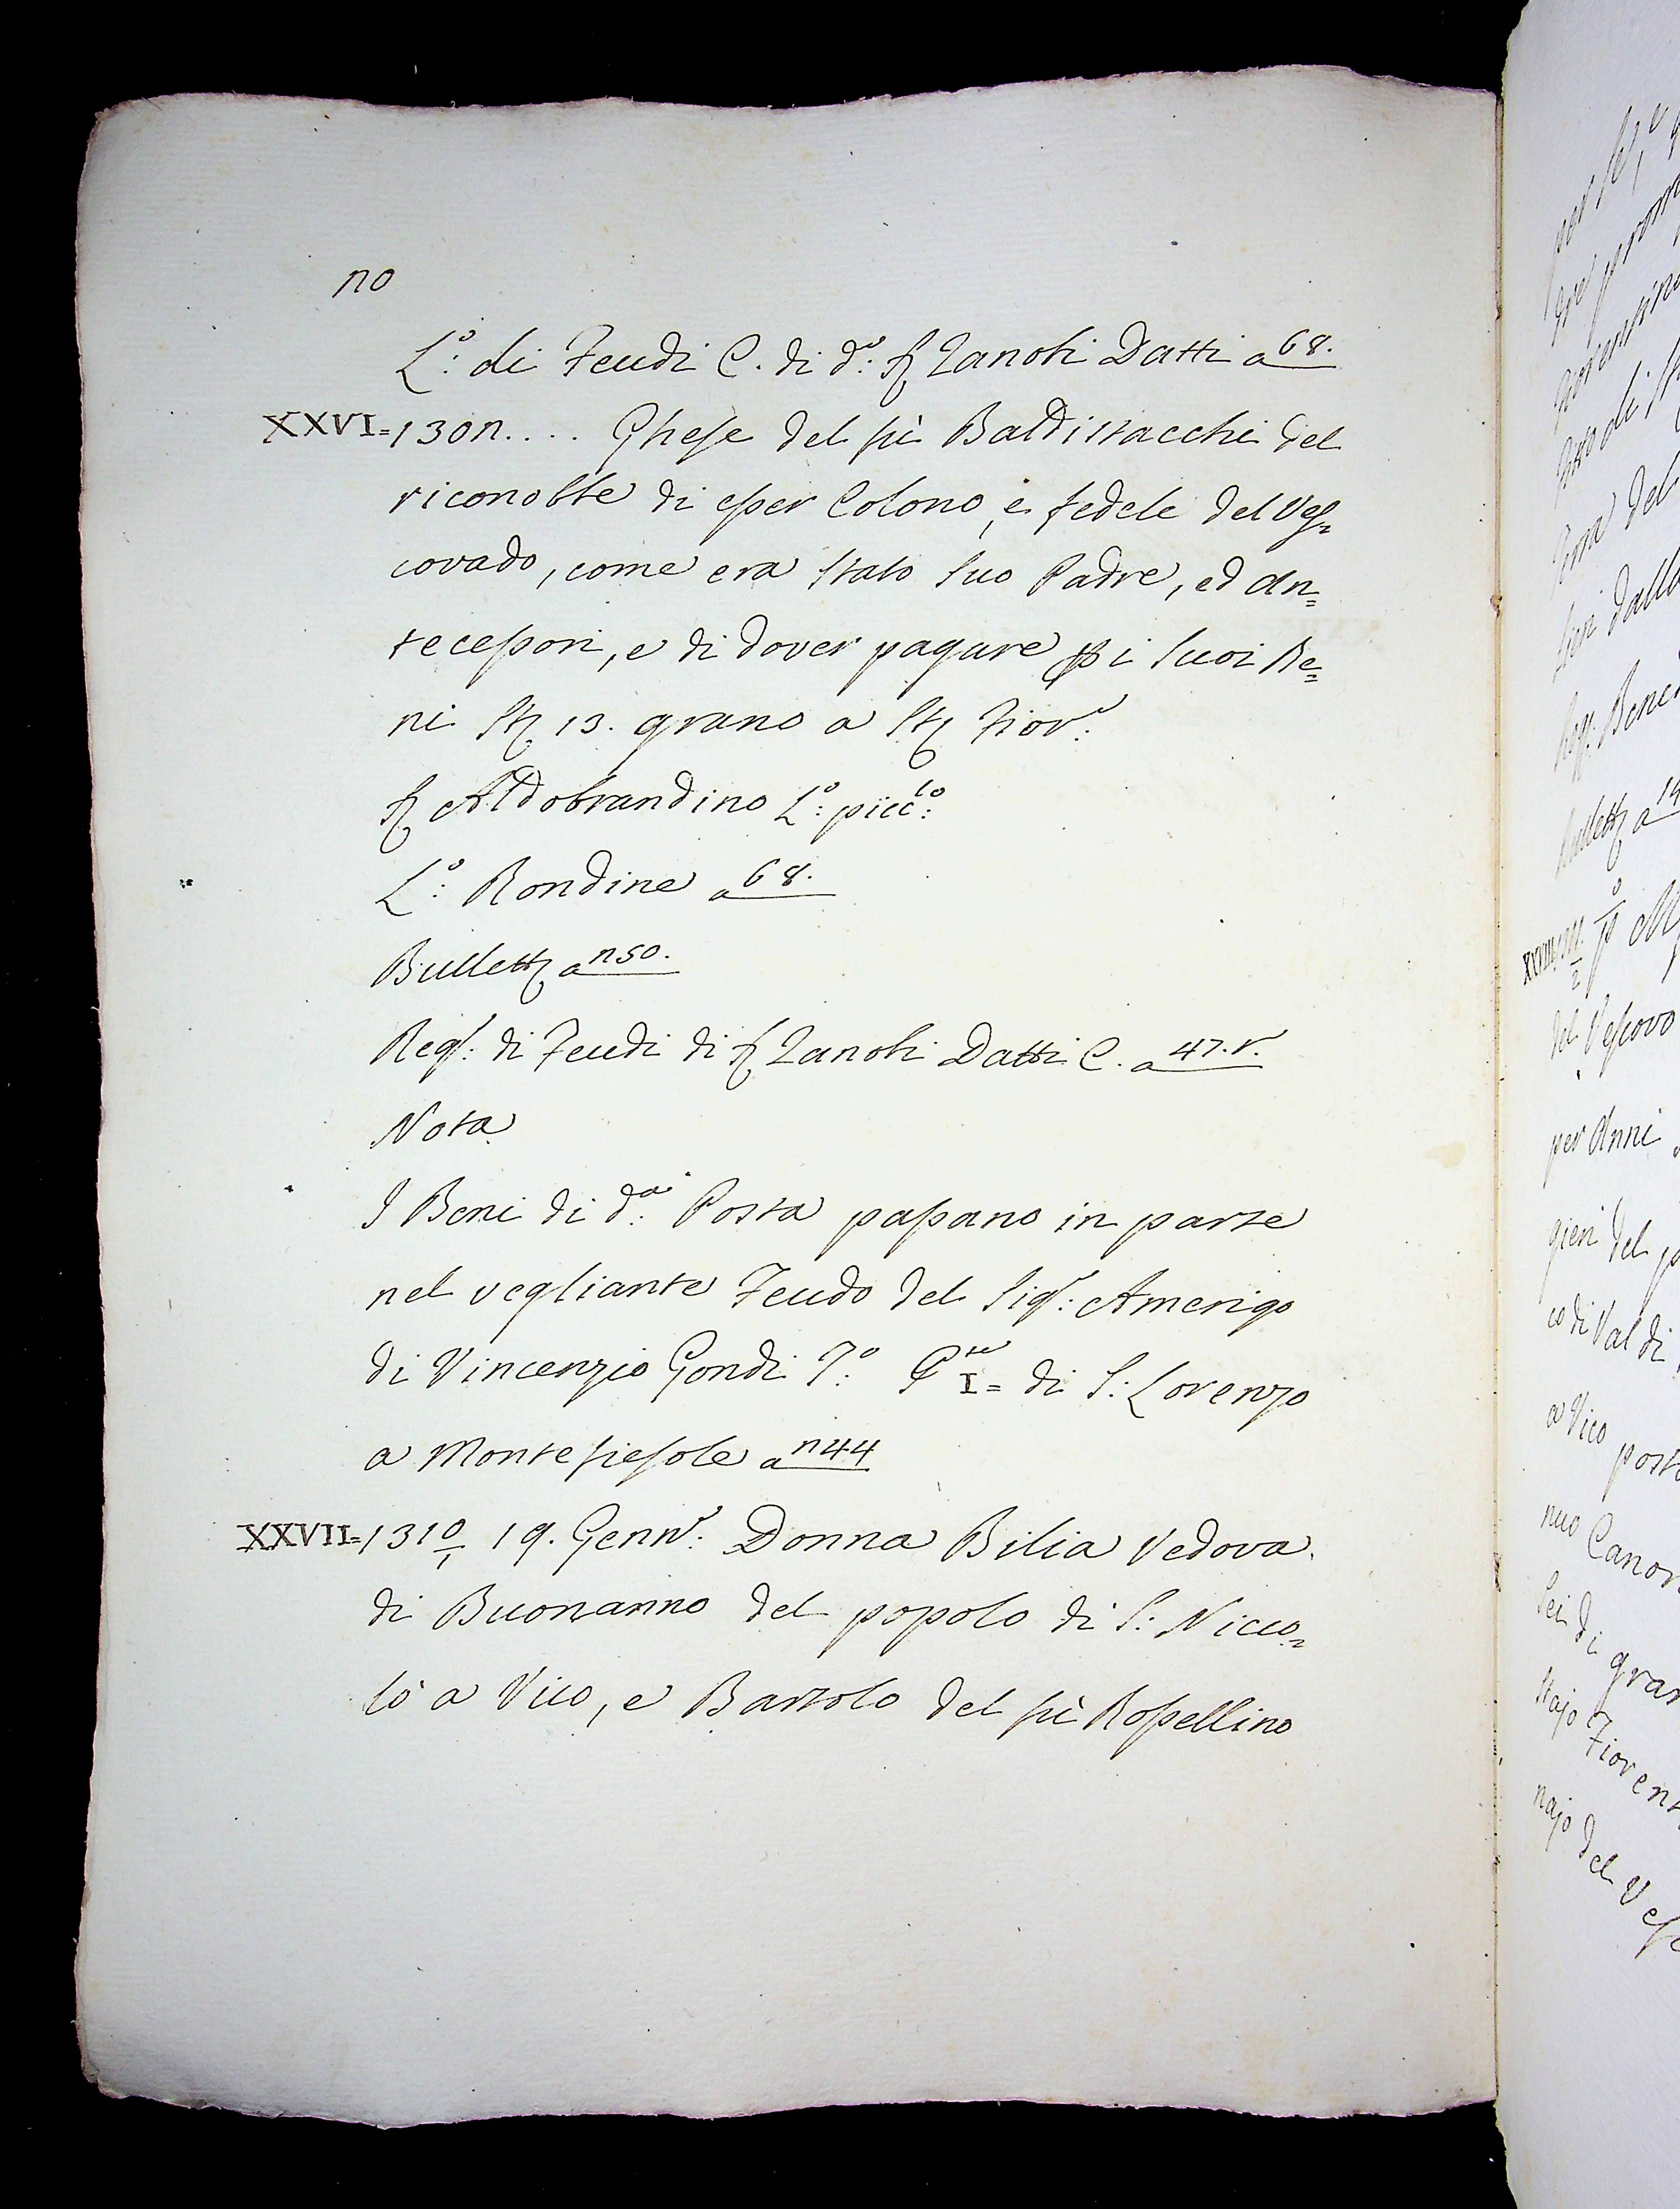 no
L.º di Feudi C. di d.º Sr Zanobi Datti a 68.
XXVI=130n.... Ghese del fù Baldistacchi del
riconobbe di esser Colono, e fedele del Ves=
covado, come era stato suo Padre, ed An=
tecessori, e di dover pagare p i suoi Be=
ni St 13. grano a St Fior.º
Sr Aldobrandino L.º picc.lo
L.º Rondine a 68.
Bullett a n50.
Reg.º di Feudi di Sr Zanobi Datti C. a 47.r.
Nota
I Beni di d.a Posta passano in parte
nel vegliante Feudo del Sig.r Amerigo
di Vincenzio Gondi T.º P.te I= di S: Lorenzo
a Montefiesole a n44
XXVII=131 0/1 19. Genn.º Donna Bilia Vedova
di Buonanno del popolo di S: Nicco=
lò a Vico, e Bartolo del fù Rossellino
Vescovo
per Anni
gieri del
co di Val di
a Vico
nuo Canon
Sei di gran
stajo Fiorent
najo del Vesc